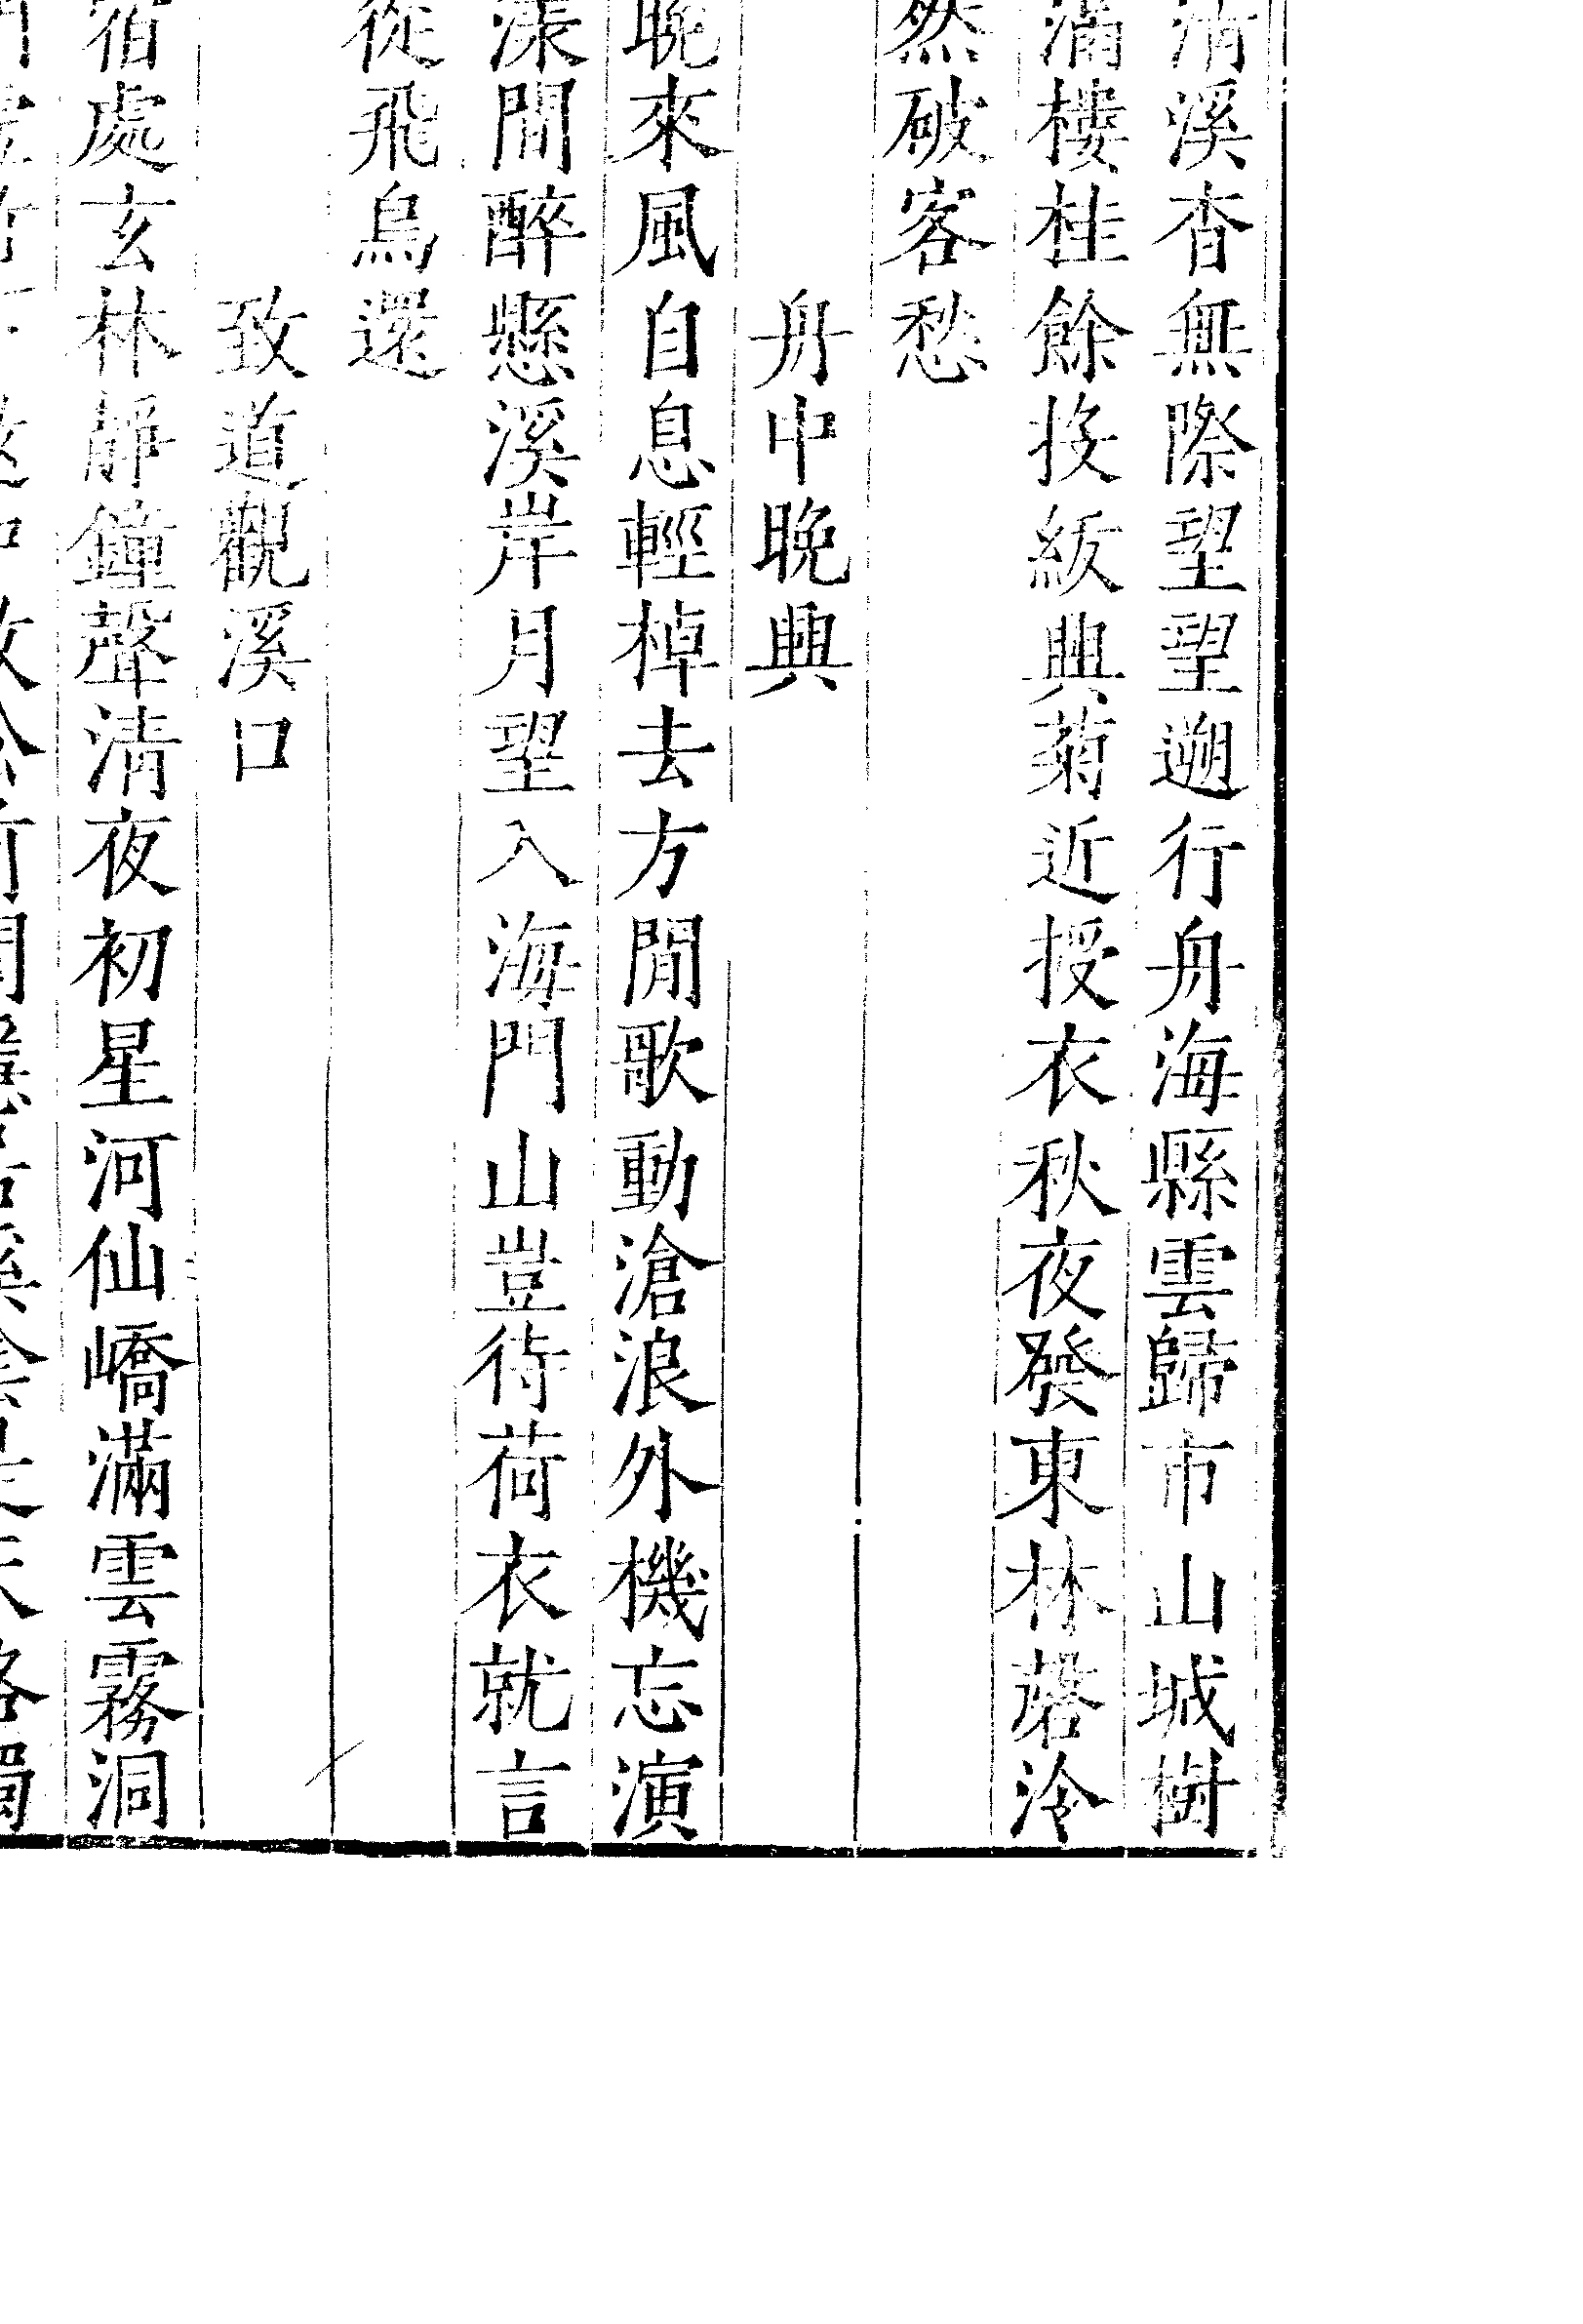 清溪杳無際望望遡行舟海縣雲歸市山城樹
滿樓桂餘投紱興菊近授衣秋夜發東林磬泠
然破客愁
舟中晚興
晚來風自息輕棹去方閒歌動滄浪外機忘演
漾間醉懸溪岸月望入海門山豈待荷衣就言
從飛鳥還
致道觀溪口
宿處玄林靜鐘聲清夜初星河仙嶠滿雲霧洞